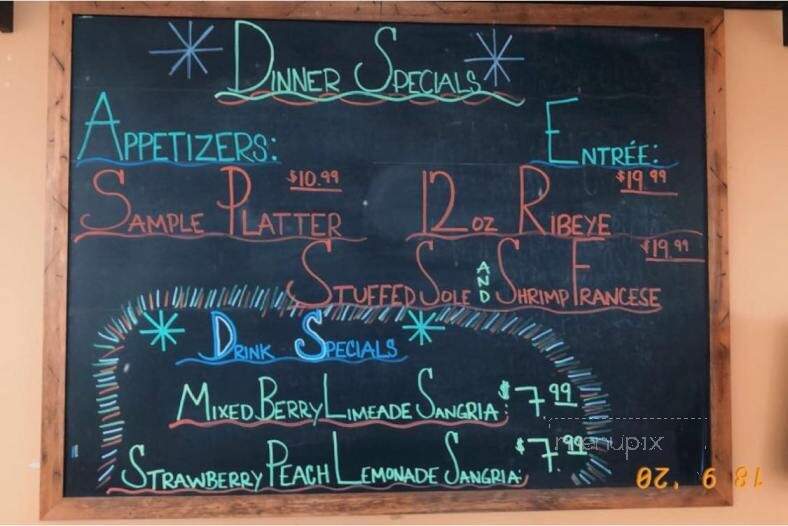 DINNER SPECIALS
APPETIZERS:
ENTRÉE:
SAMPLE PLATTER $10.99
12 OZ RIBEYE $19.99
STUFFED SOLE AND SHRIMP FRANCESE $19.99
DRINK SPECIALS
MIXED BERRY LIMEADE SANGRIA: $7.99
STRAWBERRY PEACH LEMONADE SANGRIA: $7.99
menupix
18 9 '20